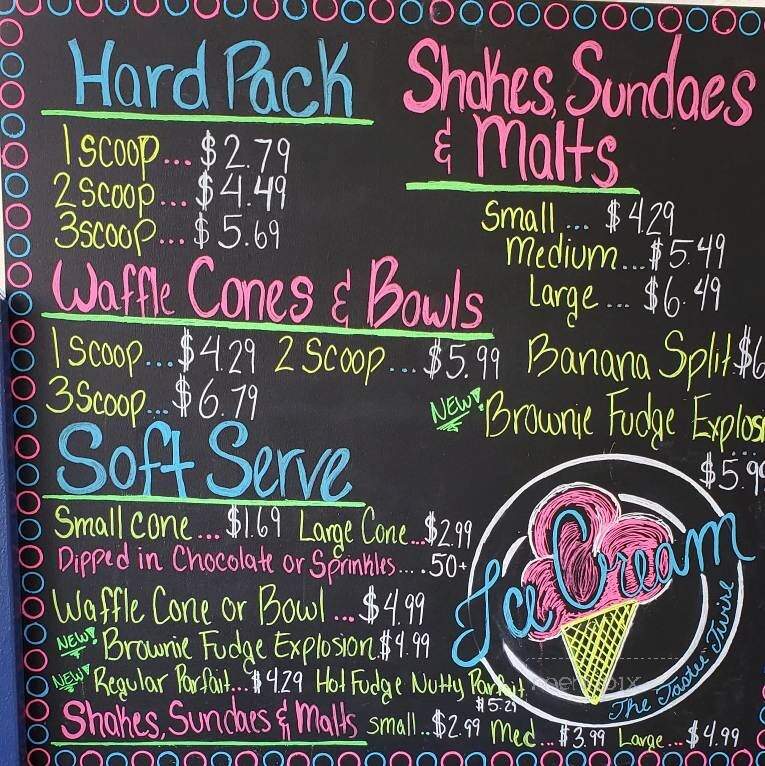 Hard Pack
1 scoop... $2.79
2 scoop... $4.49
3 scoop... $5.69
Shakes, Sundaes
& Malts
Small... $4.29
Medium... $5.49
Large... $6.49
Waffle Cones & Bowls
1 Scoop... $4.29 2 Scoop... $5.99
3 Scoop... $6.79
Banana Split $6
New! Brownie Fudge Explos
$5.99
Soft Serve
Small Cone... $1.69 Large Cone... $2.99
Dipped in Chocolate or Sprinkles... .50+
Waffle Cone or Bowl... $4.99
New! Brownie Fudge Explosion. $4.99
New! Regular Parfait... $4.29 Hot Fudge Nutty Parfait
$5.29
Shakes, Sundaes & Malts Small.. $2.99 Med... $3.99 Large... $4.99
Ice Cream
The Tastee Twire